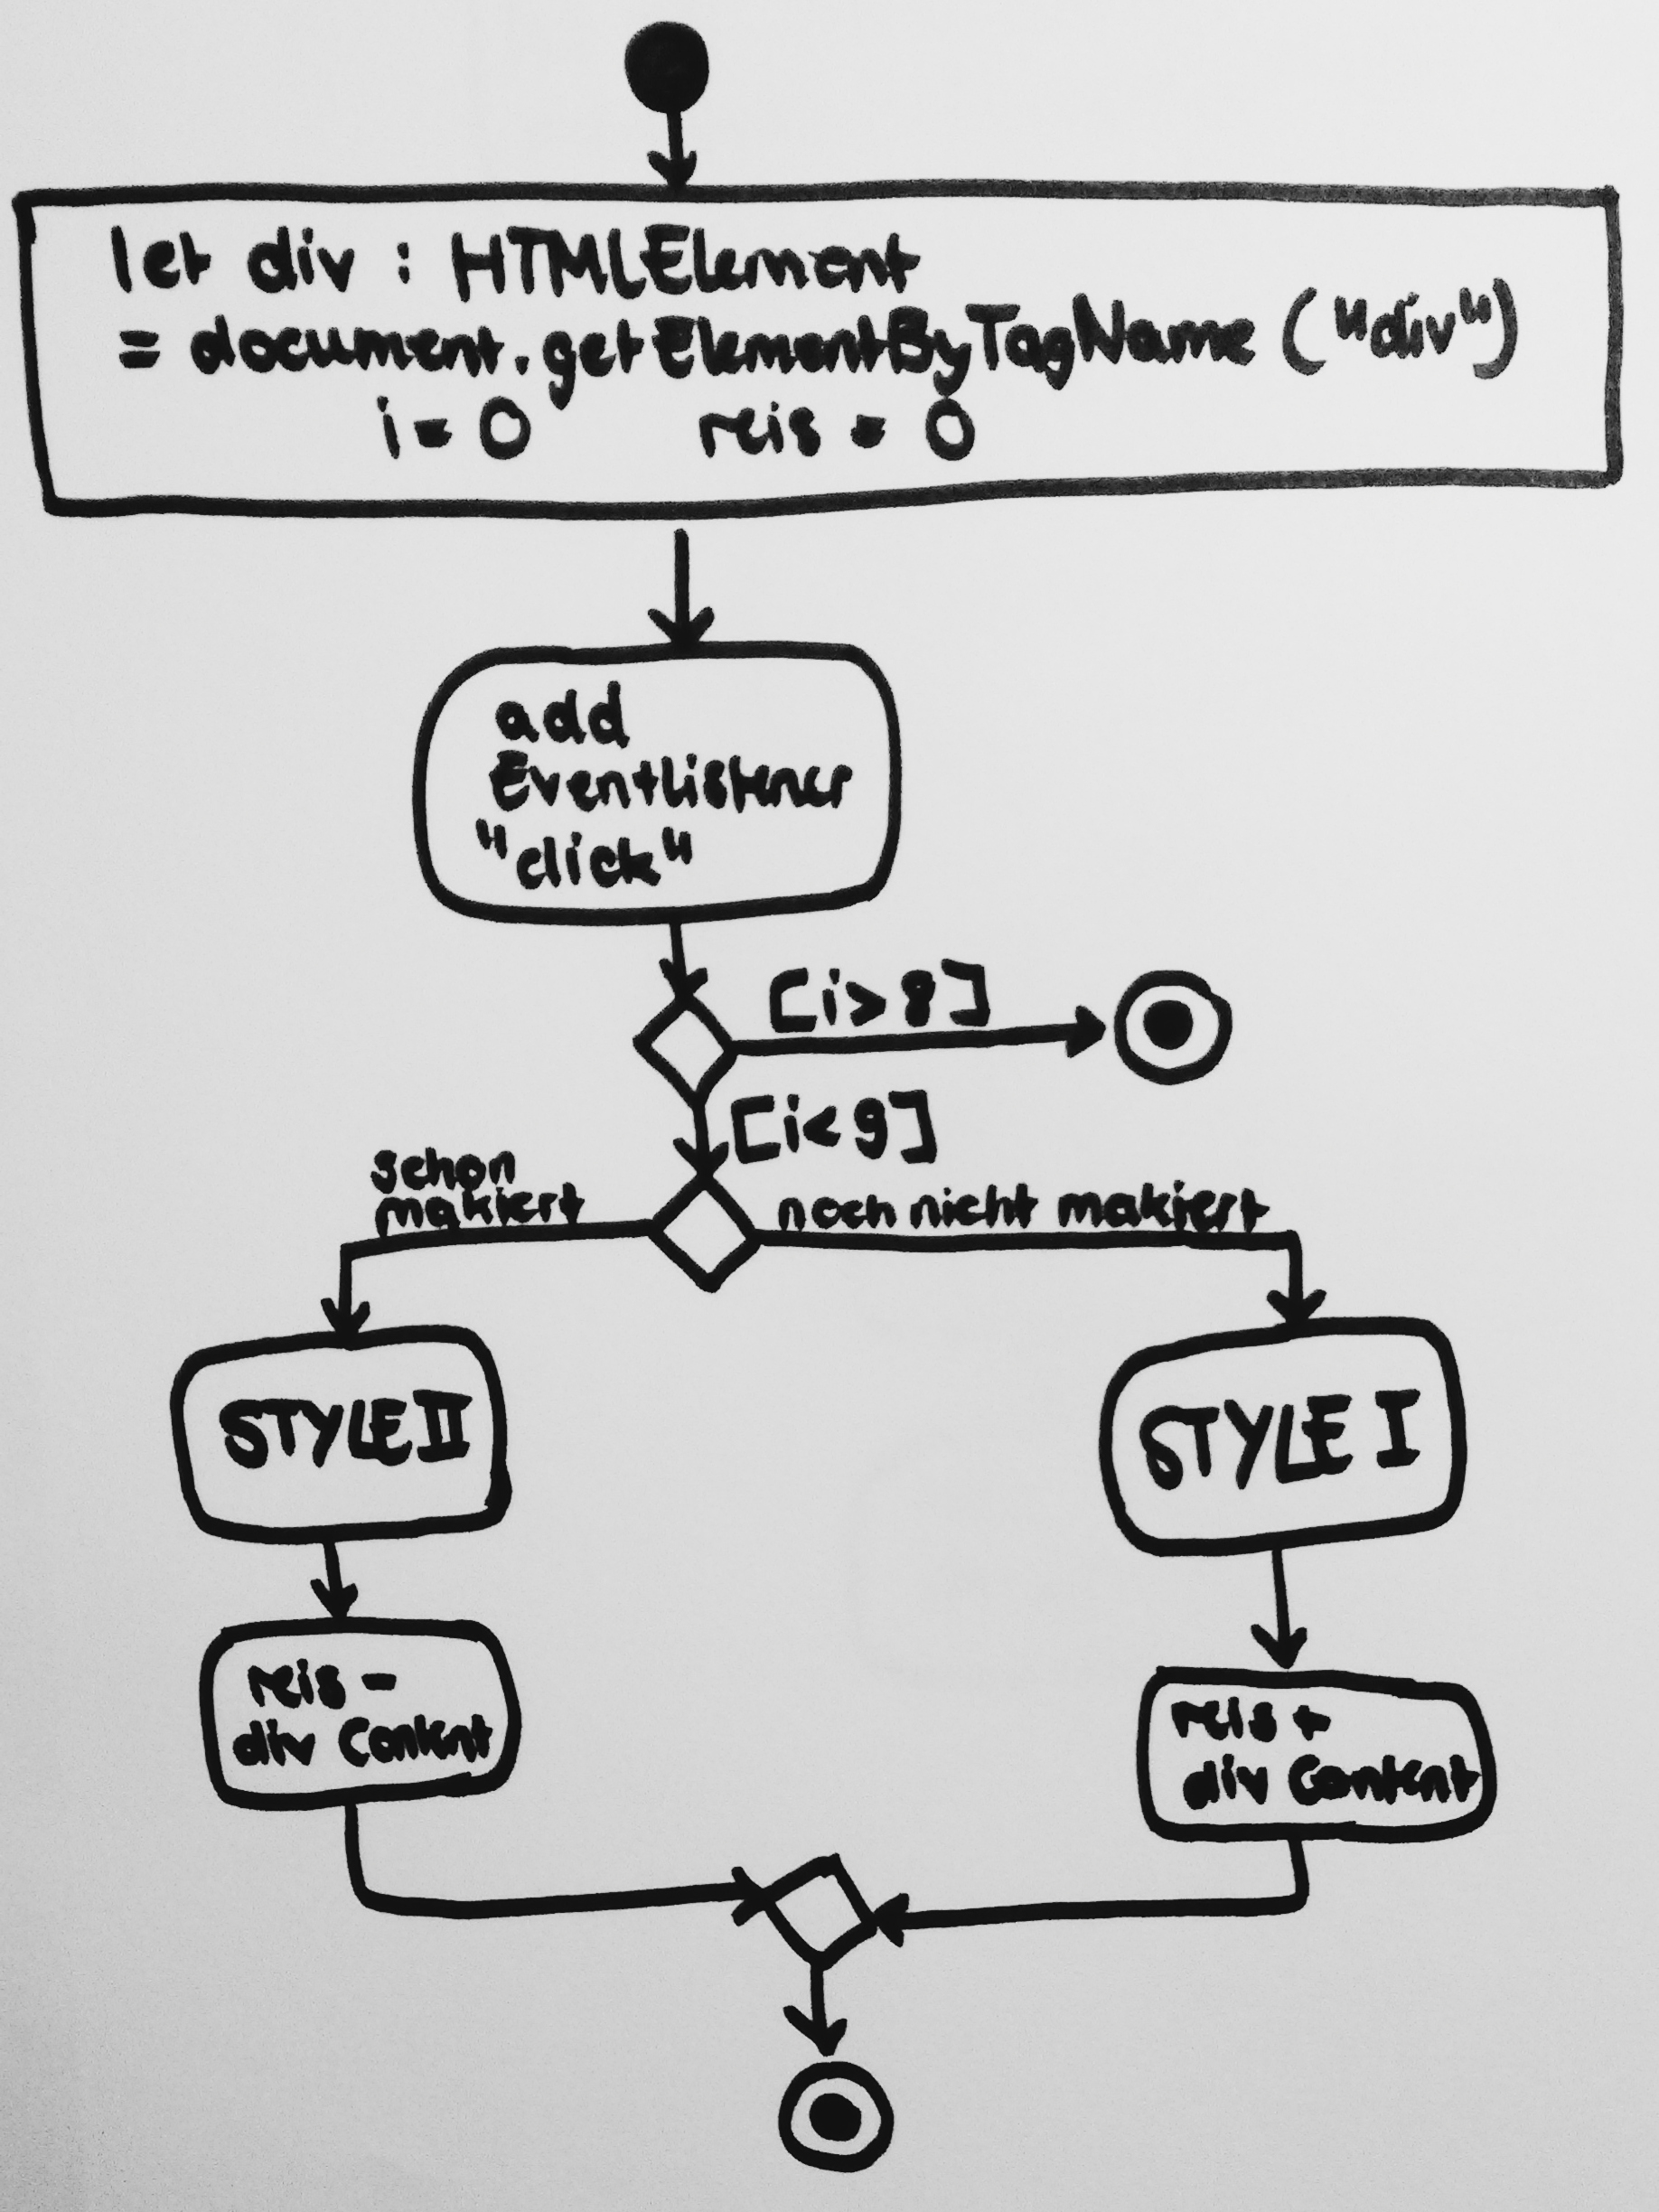 let div : HTMLElement
= document.getElementByTagName ("div")
i = 0 reis = 0
add
Eventlistener
"click"
[i> 8]
[i< 9]
schon
makiert
noch nicht makiert
STYLE II
STYLE I
reis -
div Content
reis +
div Content